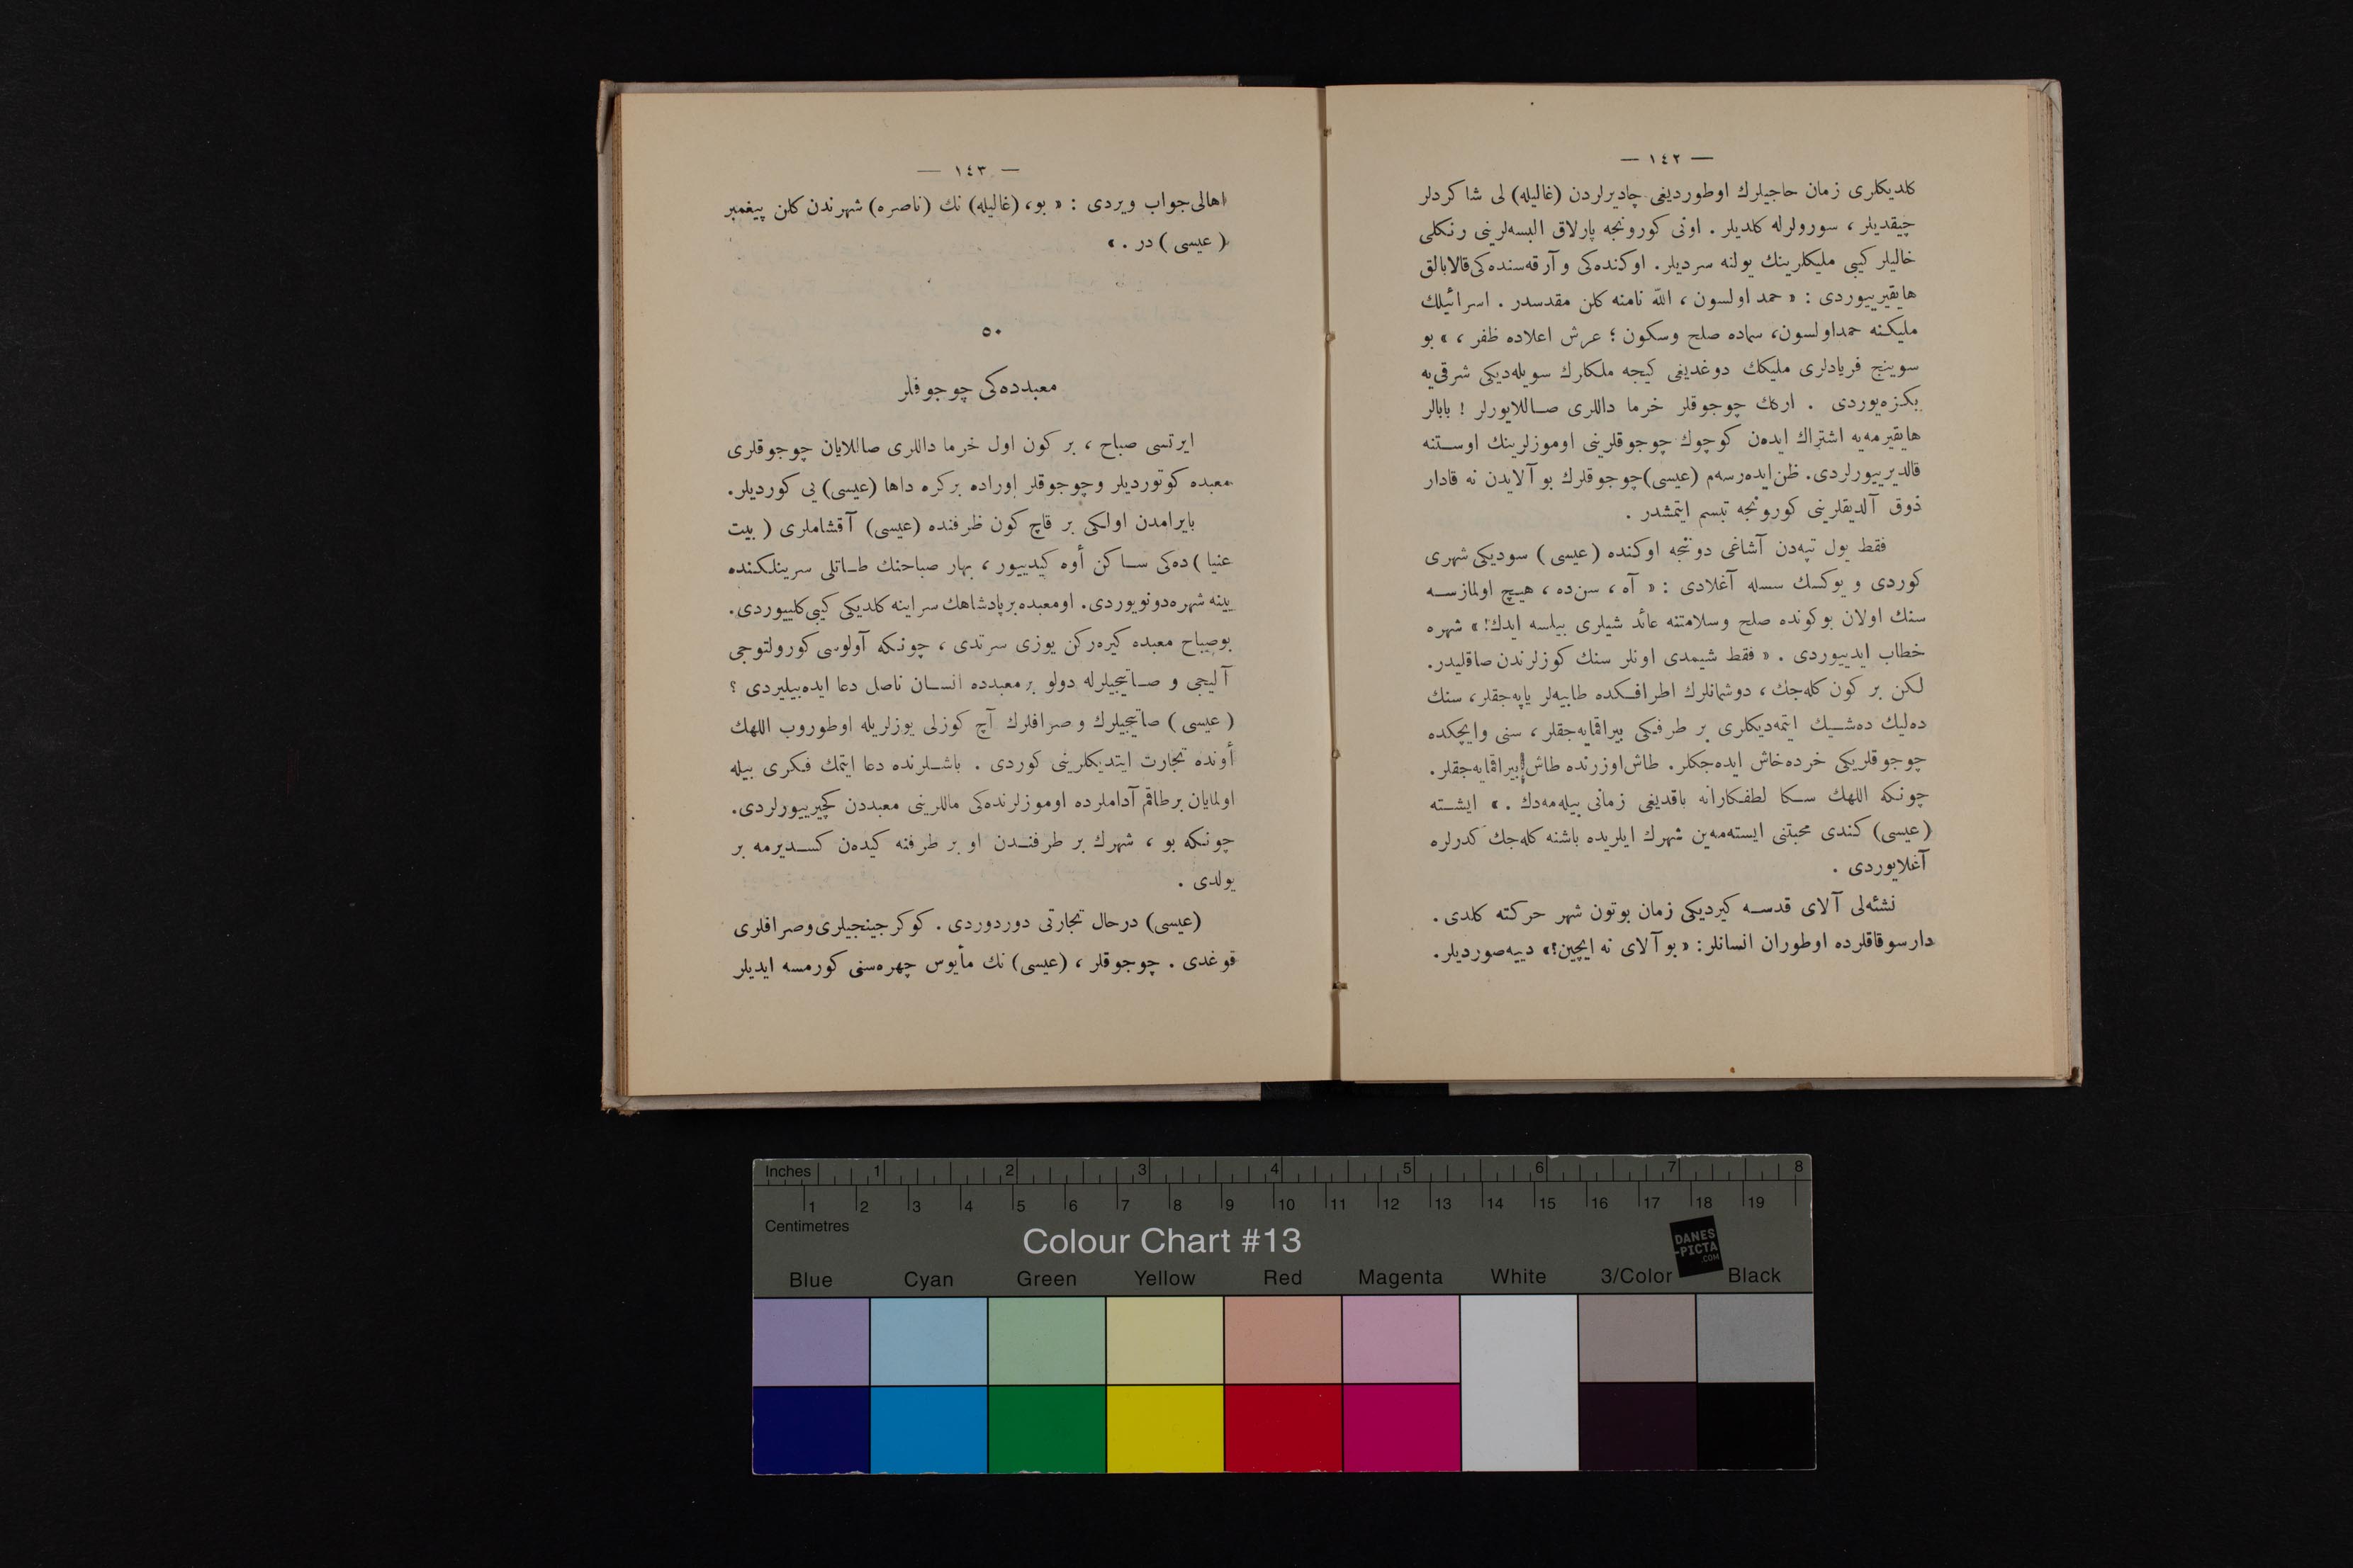 — ١٤٢ —
كلديكلرى زمان حاجيلرك اوطورديغى چاديرلردن (غاليله) لى شاكردلر
چيقديلر ، سورولرله كلديلر . اونى كورونجه پارلاق البسه‌لرينى رنكلى
خاليلر كيبى مليكلرينك يولنه سرديلر. اوكنده‌كى و آرقه‌سنده‌كى قالابالق
هايقيرييوردى : « حمد اولسون ، الله نامنه كلن مقدسدر . اسرائيلك
مليكنه حمداولسون، سماده صلح وسكون ؛ عرش اعلاده ظفر ، » بو
سوينج فريادلرى مليكك دوغديغى كيجه ملكلرك سويله‌ديكى شرقى‌يه
بكزه‌يوردى . اركك چوجوقلر خرما داللرى صاللايورلر ! بابالر
هايقيرمه‌يه اشتراك ايده‌ن كوچوك چوجوقلرينى اوموزلرينك اوستنه
قالديرييورلردى. ظن ايده‌رسه‌م (عيسى) چوجوقلرك بو آلايدن نه قادار
ذوق آلديقلرينى كورونجه تبسم ايتمشدر .
فقط يول تپه‌دن آشاغى دونجه اوكنده (عيسى) سوديكى شهرى
كوردى و يوكسك سسله آغلادى : « آه ، سن‌ده ، هيچ اولمازسه
سنك اولان بوكونده صلح وسلامتنه عائد شيلرى بيلسه ايدك!» شهره
خطاب ايدييوردى . « فقط شيمدى اونلر سنك كوزلرندن صاقليدر.
لكن بر كون كله‌جك ، دوشمانلرك اطرافكده طابيه‌لر ياپه‌جقلر، سنك
ده‌ليك ده‌شيك ايتمه‌ديكلرى بر طرفكى بيراقمايه‌جقلر ، سنى وايچكده
چوجوقلريكى خرده‌خاش ايده‌جكلر. طاش اوزرنده طاش بيراقمايه‌جقلر.
چونكه اللهك سكا لطفكارانه باقديغى زمانى بيله‌مه‌دك . » ايشته
(عيسى) كندى محبتنى ايسته‌مه‌ين شهرك ايلريده باشنه كله‌جك كدرلره
آغلايوردى .
نشئه‌لى آلاى قدسه كيرديكى زمان بوتون شهر حركته كلدى .
دارسوقاقلرده اوطوران انسانلر: « بو آلاى نه ايچين؟» دييه صورديلر.
— ١٤٣ —
اهالى جواب ويردى : « بو، (غاليله) نك (ناصره) شهرندن كلن پيغمبر
(عيسى) در . »
٥٠
معبدده‌كى چوجوقلر
ايرتسى صباح ، بر كون اول خرما داللرى صاللايان چوجوقلرى
معبده كوتورديلر وچوجوقلر اوراده بركره داها (عيسى) يى كورديلر.
بايرامدن اولكى بر قاچ كون ظرفنده (عيسى) آقشاملرى ( بيت
عنيا ) ده‌كى ساكن أوه كيدييور ، بهار صباحنك طاتلى سرينلكنده
يينه شهره‌دونويوردى. اومعبده برپادشاهك سراينه كلديكى كيبى كلييوردى.
بوصباح معبده كيره‌ركن يوزى سرتدى ، چونكه آولوسى كورولتوجى
آليجى و صاتيجيلرله دولو بر معبدده انسان ناصل دعا ايده‌بيليردى ؟
(عيسى) صاتيجيلرك و صرافلرك آچ كوزلى يوزلريله اوطوروب اللهك
أونده تجارت ايتديكلرينى كوردى . باشلرنده دعا ايتمك فكرى بيله
اولمايان برطاقم آداملرده اوموزلرنده‌كى ماللرينى معبددن كچيرييورلردى.
چونكه بو ، شهرك بر طرفندن او بر طرفنه كيده‌ن كسديرمه بر
يولدى .
(عيسى) درحال تجارتى دوردوردى . كوكرجينجيلرى وصرافلرى
قوغدى . چوجوقلر ، (عيسى) نك مأيوس چهره‌سنى كورمسه ايديلر
Inches 1 2 3 4 5 6 7 8
1 2 3 4 5 6 7 8 9 10 11 12 13 14 15 16 17 18 19
Centimetres
Colour Chart #13
DANES
-PICTA
.COM
Blue Cyan Green Yellow Red Magenta White 3/Color Black